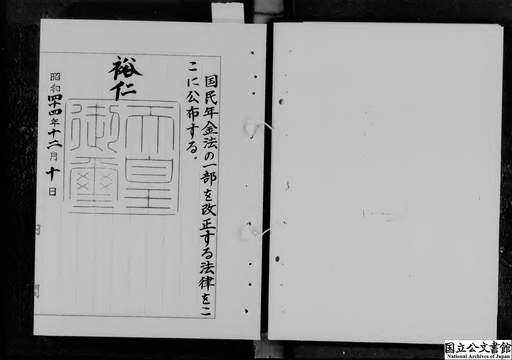 国民年金法の一部を改正する法律をこ
こに公布する。
裕仁
天皇
御璽
昭和四十四年十二月十日
国立公文書館
National Archives of Japan